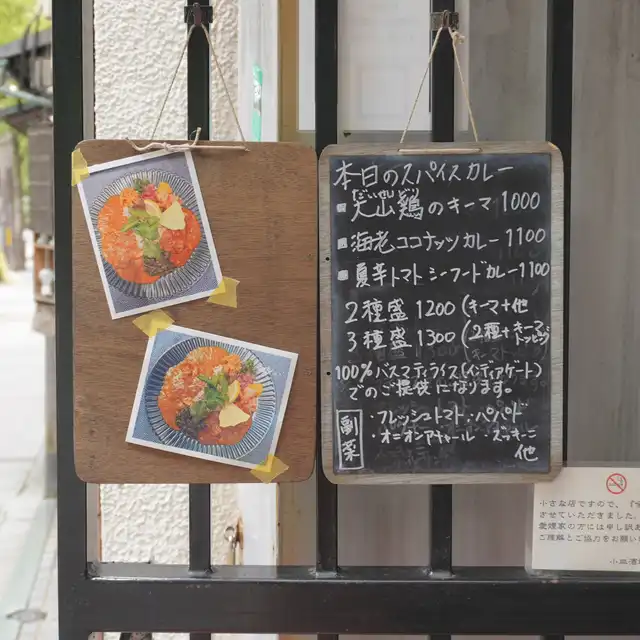 本日のスパイスカレー
だいせんどり
大山鶏のキーマ 1000
海老ココナッツカレー 1100
夏辛トマトシーフードカレー 1100
2種盛 1200 (キーマ+他
3種盛 1300 (2種+キーマトッピング
100% バスマティライス(インディアゲート)
でのご提供になります。
副菜
・フレッシュトマト・パパド
・オニオンアチャール ・ズッキーニ
他
小さな店ですので、
させていただきました。
愛煙家の方には申し訳あ
ご理解とご協力をお願い